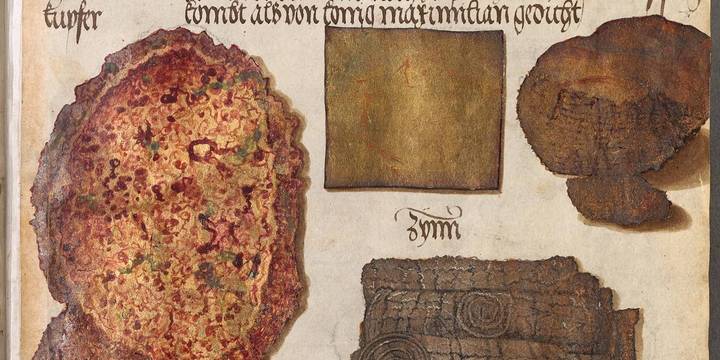 kupfer
kombt als von konig maximilian gedicht
Zynn